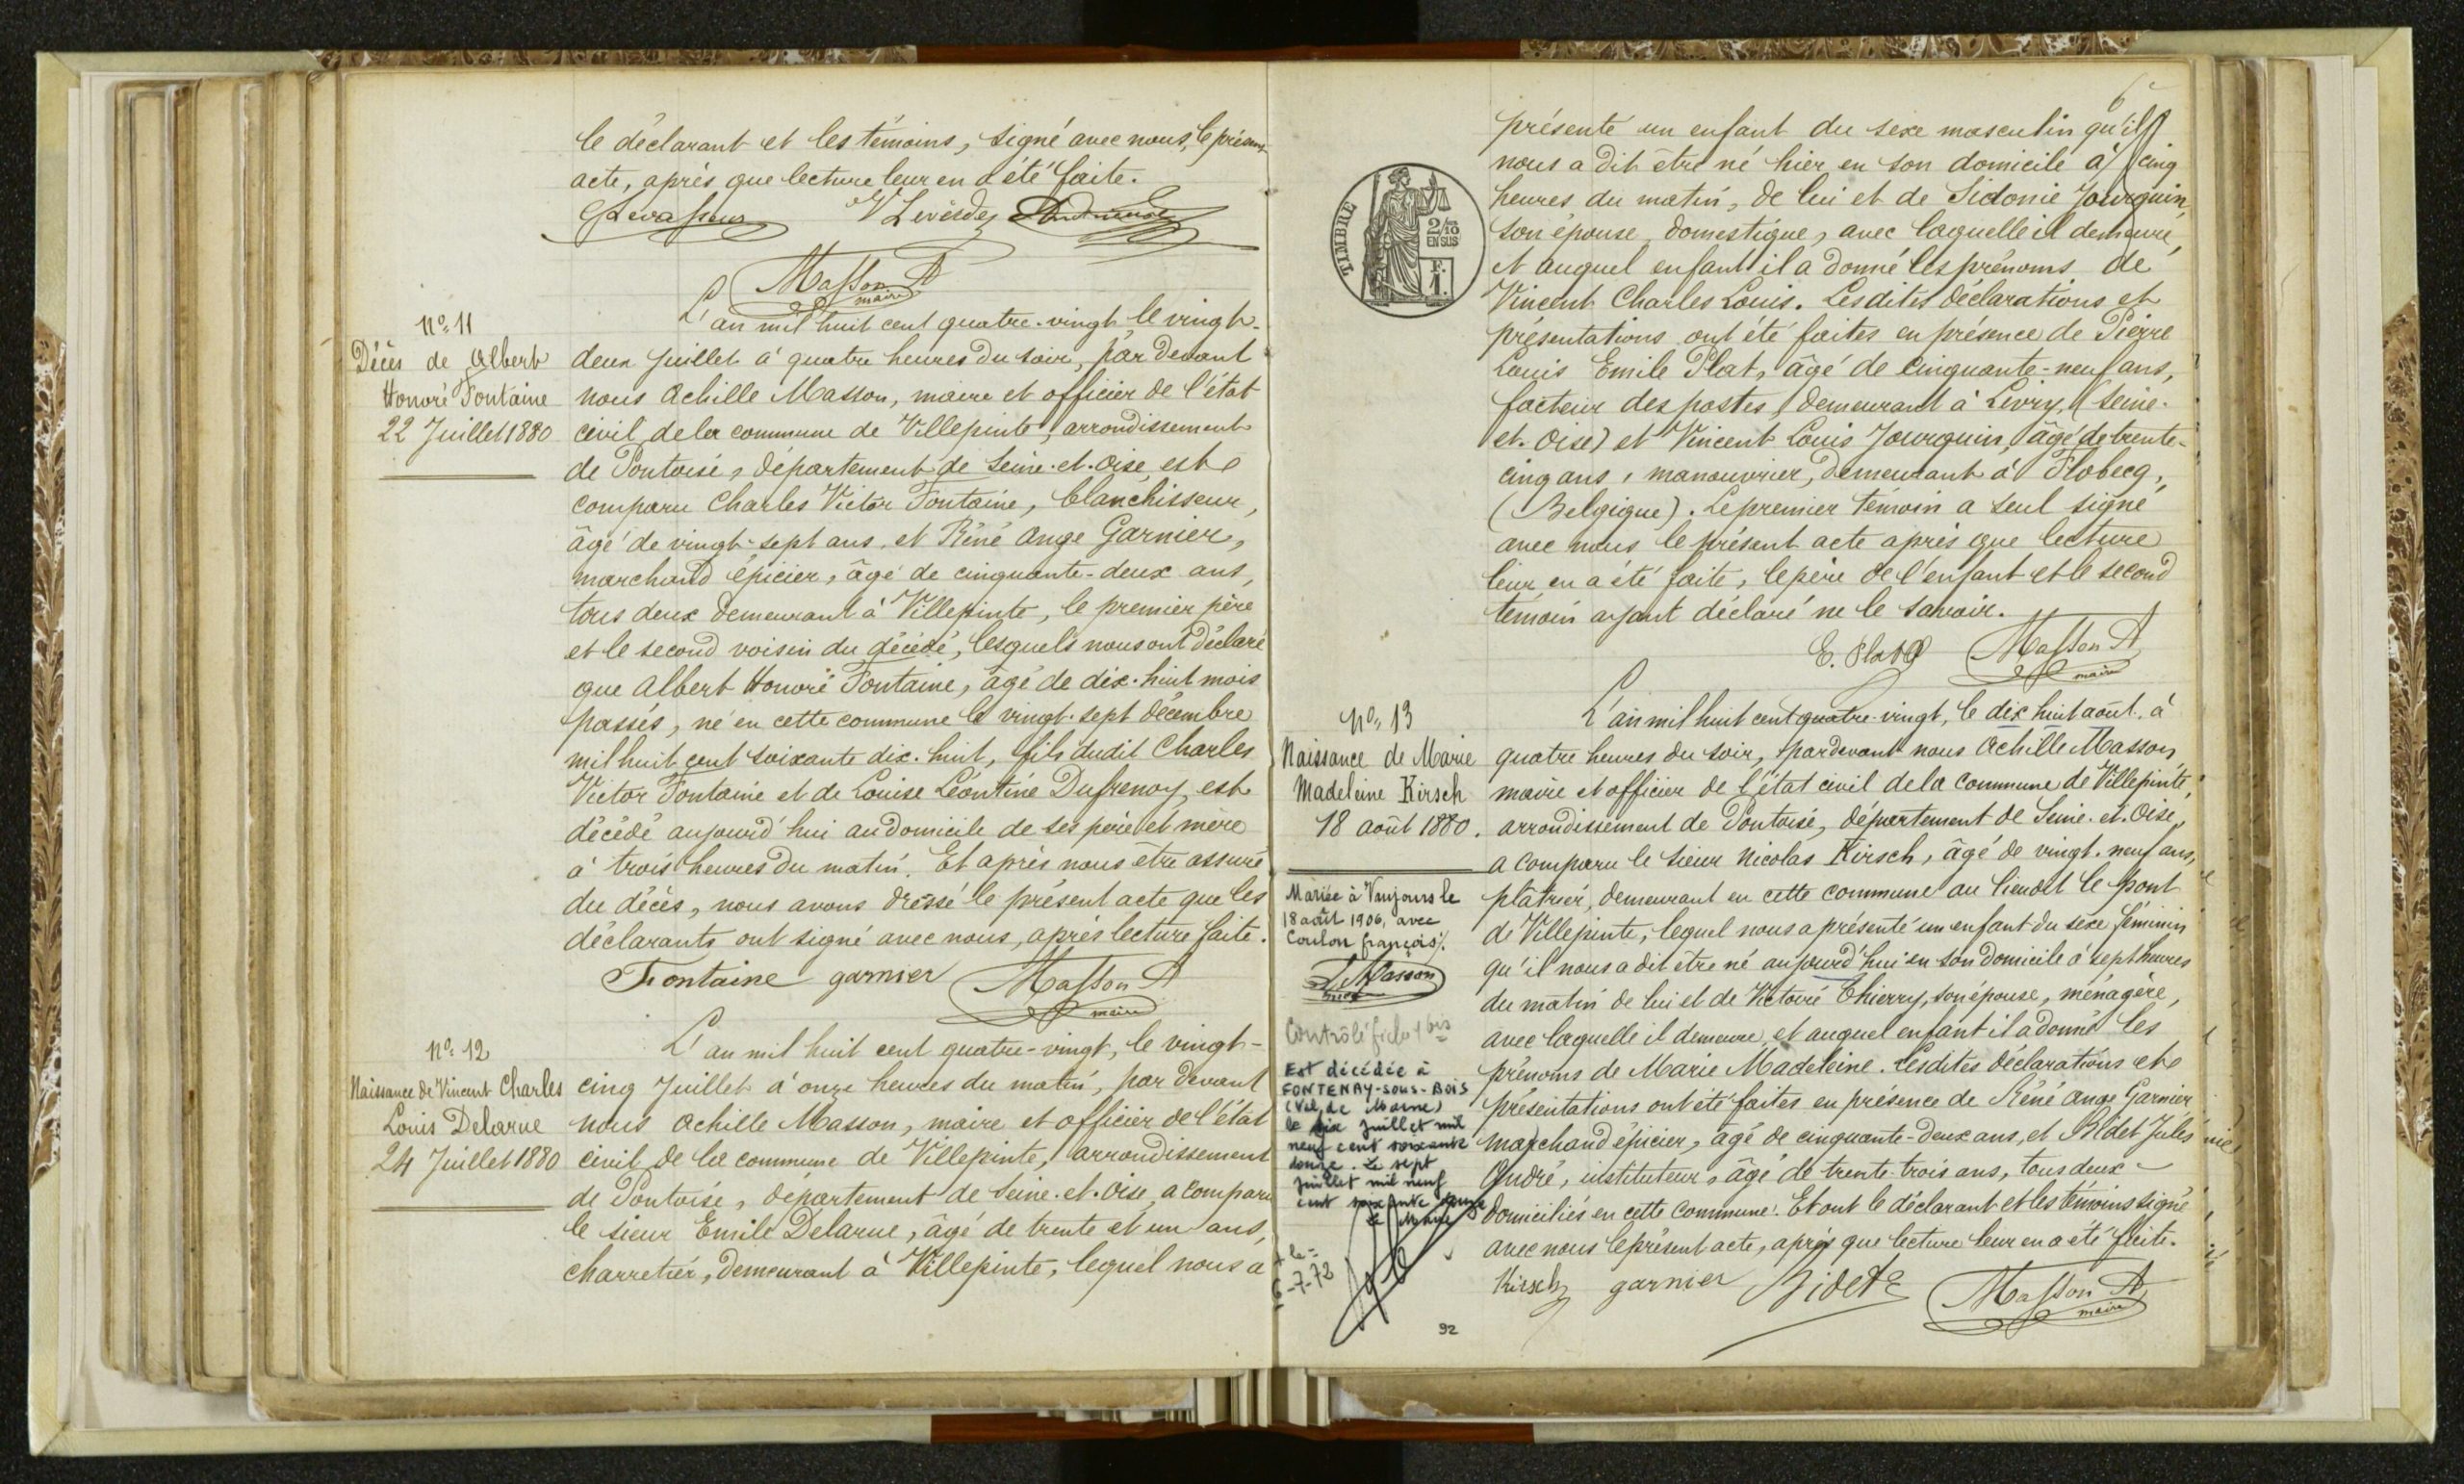 le déclarant et les témoins, signé avec nous, le présent
acte, après que lecture leur en a été faite.
Levasseur
Masson A
maire
N° 11
Décès de Albert
Honoré Fontaine
22 Juillet 1880
L'an mil huit cent quatre-vingt, le vingt-
deux juillet à quatre heures du soir, par devant
nous Achille Masson, maire et officier de l'état
civil de la commune de Villepinte, arrondissement
de Pontoise, département de Seine-et-Oise, est
comparu Charles Victor Fontaine, blanchisseur,
âgé de vingt-sept ans, et Réné Ange Garnier,
marchand épicier, âgé de cinquante-deux ans,
tous deux demeurant à Villepinte, le premier père
et le second voisin du décédé, lesquels nous ont déclaré
que Albert Honoré Fontaine, âgé de dix-huit mois
passés, né en cette commune le vingt-sept décembre
mil huit cent soixante dix-huit, fils dudit Charles
Victor Fontaine et de Louise Léontine Dufrenoy, est
décédé aujourd'hui au domicile de ses père et mère
à trois heures du matin. Et après nous être assuré
du décès, nous avons dressé le présent acte que les
déclarants ont signé avec nous, après lecture faite.
Fontaine garnier Masson A
maire
N° 12
Naissance de Vincent Charles
Louis Delarue
24 Juillet 1880
L'an mil huit cent quatre-vingt, le vingt-
cinq Juillet à onze heures du matin, par devant
nous Achille Masson, maire et officier de l'état
civil de la commune de Villepinte, arrondissement
de Pontoise, département de Seine-et-Oise, a comparu
le sieur Emile Delarue, âgé de trente et un ans,
charretier, demeurant à Villepinte, lequel nous a
6
présenté un enfant du sexe masculin qu'il
nous a dit être né hier en son domicile à cinq
heures du matin, de lui et de Sidonie Jourquin,
son épouse, domestique, avec laquelle il demeure,
et auquel enfant il a donné les prénoms de
Vincent Charles Louis. Lesdites déclarations et
présentations ont été faites en présence de Pierre
Louis Emile Plat, âgé de cinquante-neuf ans,
facteur des postes, demeurant à Livry, (Seine-
et-Oise) et Vincent Louis Jourquin, âgé de trente-
cinq ans, manouvrier, demeurant à Flobecq,
(Belgique). Le premier témoin a seul signé
avec nous le présent acte après que lecture
leur en a été faite, le père de l'enfant et le second
témoin ayant déclaré ne le savoir.
E. Plat Masson A
maire
TIMBRE
2/10
EN SUS
F.
1.
N° 13
Naissance de Marie
Madeleine Kirsch
18 août 1880.
Mariée à Vaujours le
18 août 1906, avec
Coulon françois.
Masson
Contrôlé bis
Est décédée à
FONTENAY-SOUS-BOIS
(Val de Marne)
le six juillet mil
neuf cent soixante
douze. Le sept
juillet mil neuf
cent soixante douze
Le Maire
+ le
6-7-72
92
L'an mil huit cent quatre-vingt, le dix huit août, à
quatre heures du soir, pardevant nous Achille Masson,
maire et officier de l'état civil de la commune de Villepinte,
arrondissement de Pontoise, département de Seine-et-Oise,
a comparu le sieur Nicolas Kirsch, âgé de vingt-neuf ans,
plâtrier, demeurant en cette commune au lieudit le pont
de Villepinte, lequel nous a présenté un enfant du sexe féminin
qu'il nous a dit être né aujourd'hui en son domicile à sept heures
du matin de lui et de Victoire Thierry, son épouse, ménagère,
avec laquelle il demeure, et auquel enfant il a donné les
prénoms de Marie Madeleine. Lesdites déclarations et
présentations ont été faites en présence de Réné Ange Garnier
marchand épicier, âgé de cinquante-deux ans, et Bidet Jules
André, instituteur, âgé de trente-trois ans, tous deux
domiciliés en cette commune. Et ont le déclarant et les témoins signé
avec nous le présent acte, après que lecture leur en a été faite.
Kirsch garnier Bidet Masson A
maire